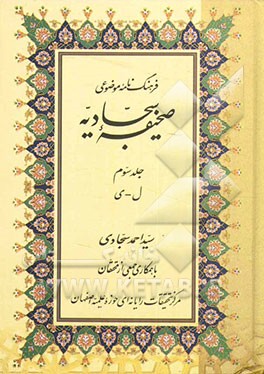 فرهنگ‌نامه موضوعی
صحیفه سجادیه
جلد سوم
ل-ی
سید احمد سجادی
با همکاری جمعی از محققان
مرکز تحقیقات رایانه‌ای حوزه علمیه اصفهان